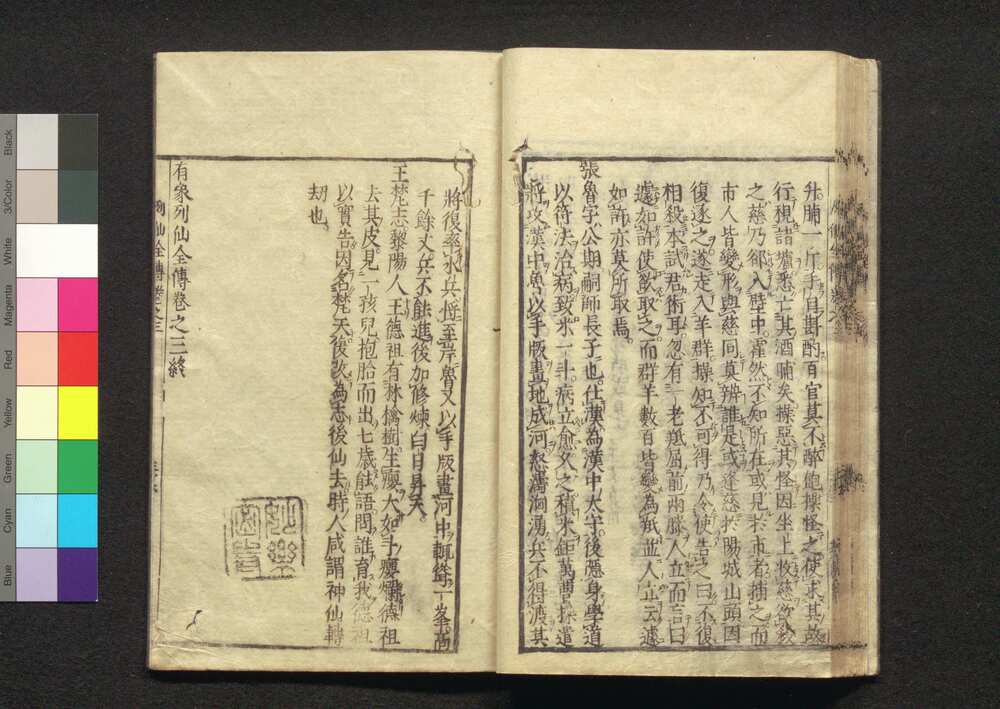 升脯一斤手自斟酌百官莫不醉飽操怪之使求其故
行視諸壚悉亡其酒脯矣操惡其怪因坐上收慈欲殺
之慈乃郤入壁中霍然不知所在或見於市者捕之而
市人皆變形與慈同莫辨誰是或逢慈於陽城山頭因
復逐之遂走入羊群操知不可得乃令使告之曰不復
相殺本試君術耳忽有一老羝屈前兩膝人立而言曰
遽如許使欲取之而群羊數百皆變為羝並人立云遽
如許亦莫所取焉
張魯字公期嗣師長子也仕漢為漢中太守後隱身學道
以符法治病致米一斗病立愈久之積米鉅萬曹操遣
將攻漢中魯以手版畫地成河怒濤洄湧兵不得渡其
將復率水兵䑳至岸魯又以手版畫河中輒聳一峯高
千餘丈兵不能進後加修煉白日昇天
王梵志黎陽人王德祖有林檎樹生癭大如斗癭爛德祖
去其皮見一孩兒抱胎而出七歲能語問誰育我德祖
以實告因名梵天後改為志後仙去時人咸謂神仙轉
劫也
有象列仙全傳卷之三終
列仙全傳卷之三
Black
3/Color
White
Magenta
Red
Yellow
Green
Cyan
Blue